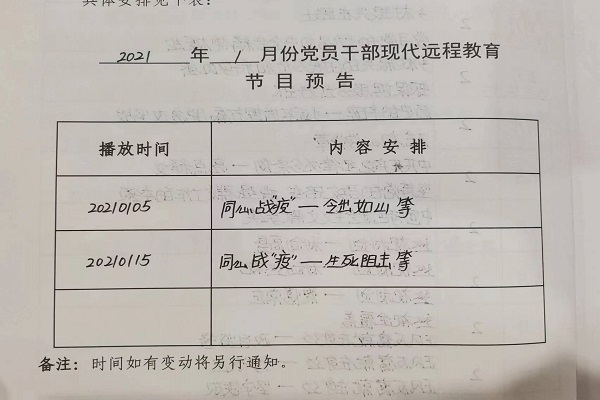 具体安排见下表:
2021 年 1 月份党员干部现代远程教育
节目预告
播放时间 内容安排
20210105 同心战"疫"—令出如山 等
20210115 同心战"疫"—生死阻击 等
备注:时间如有变动将另行通知。